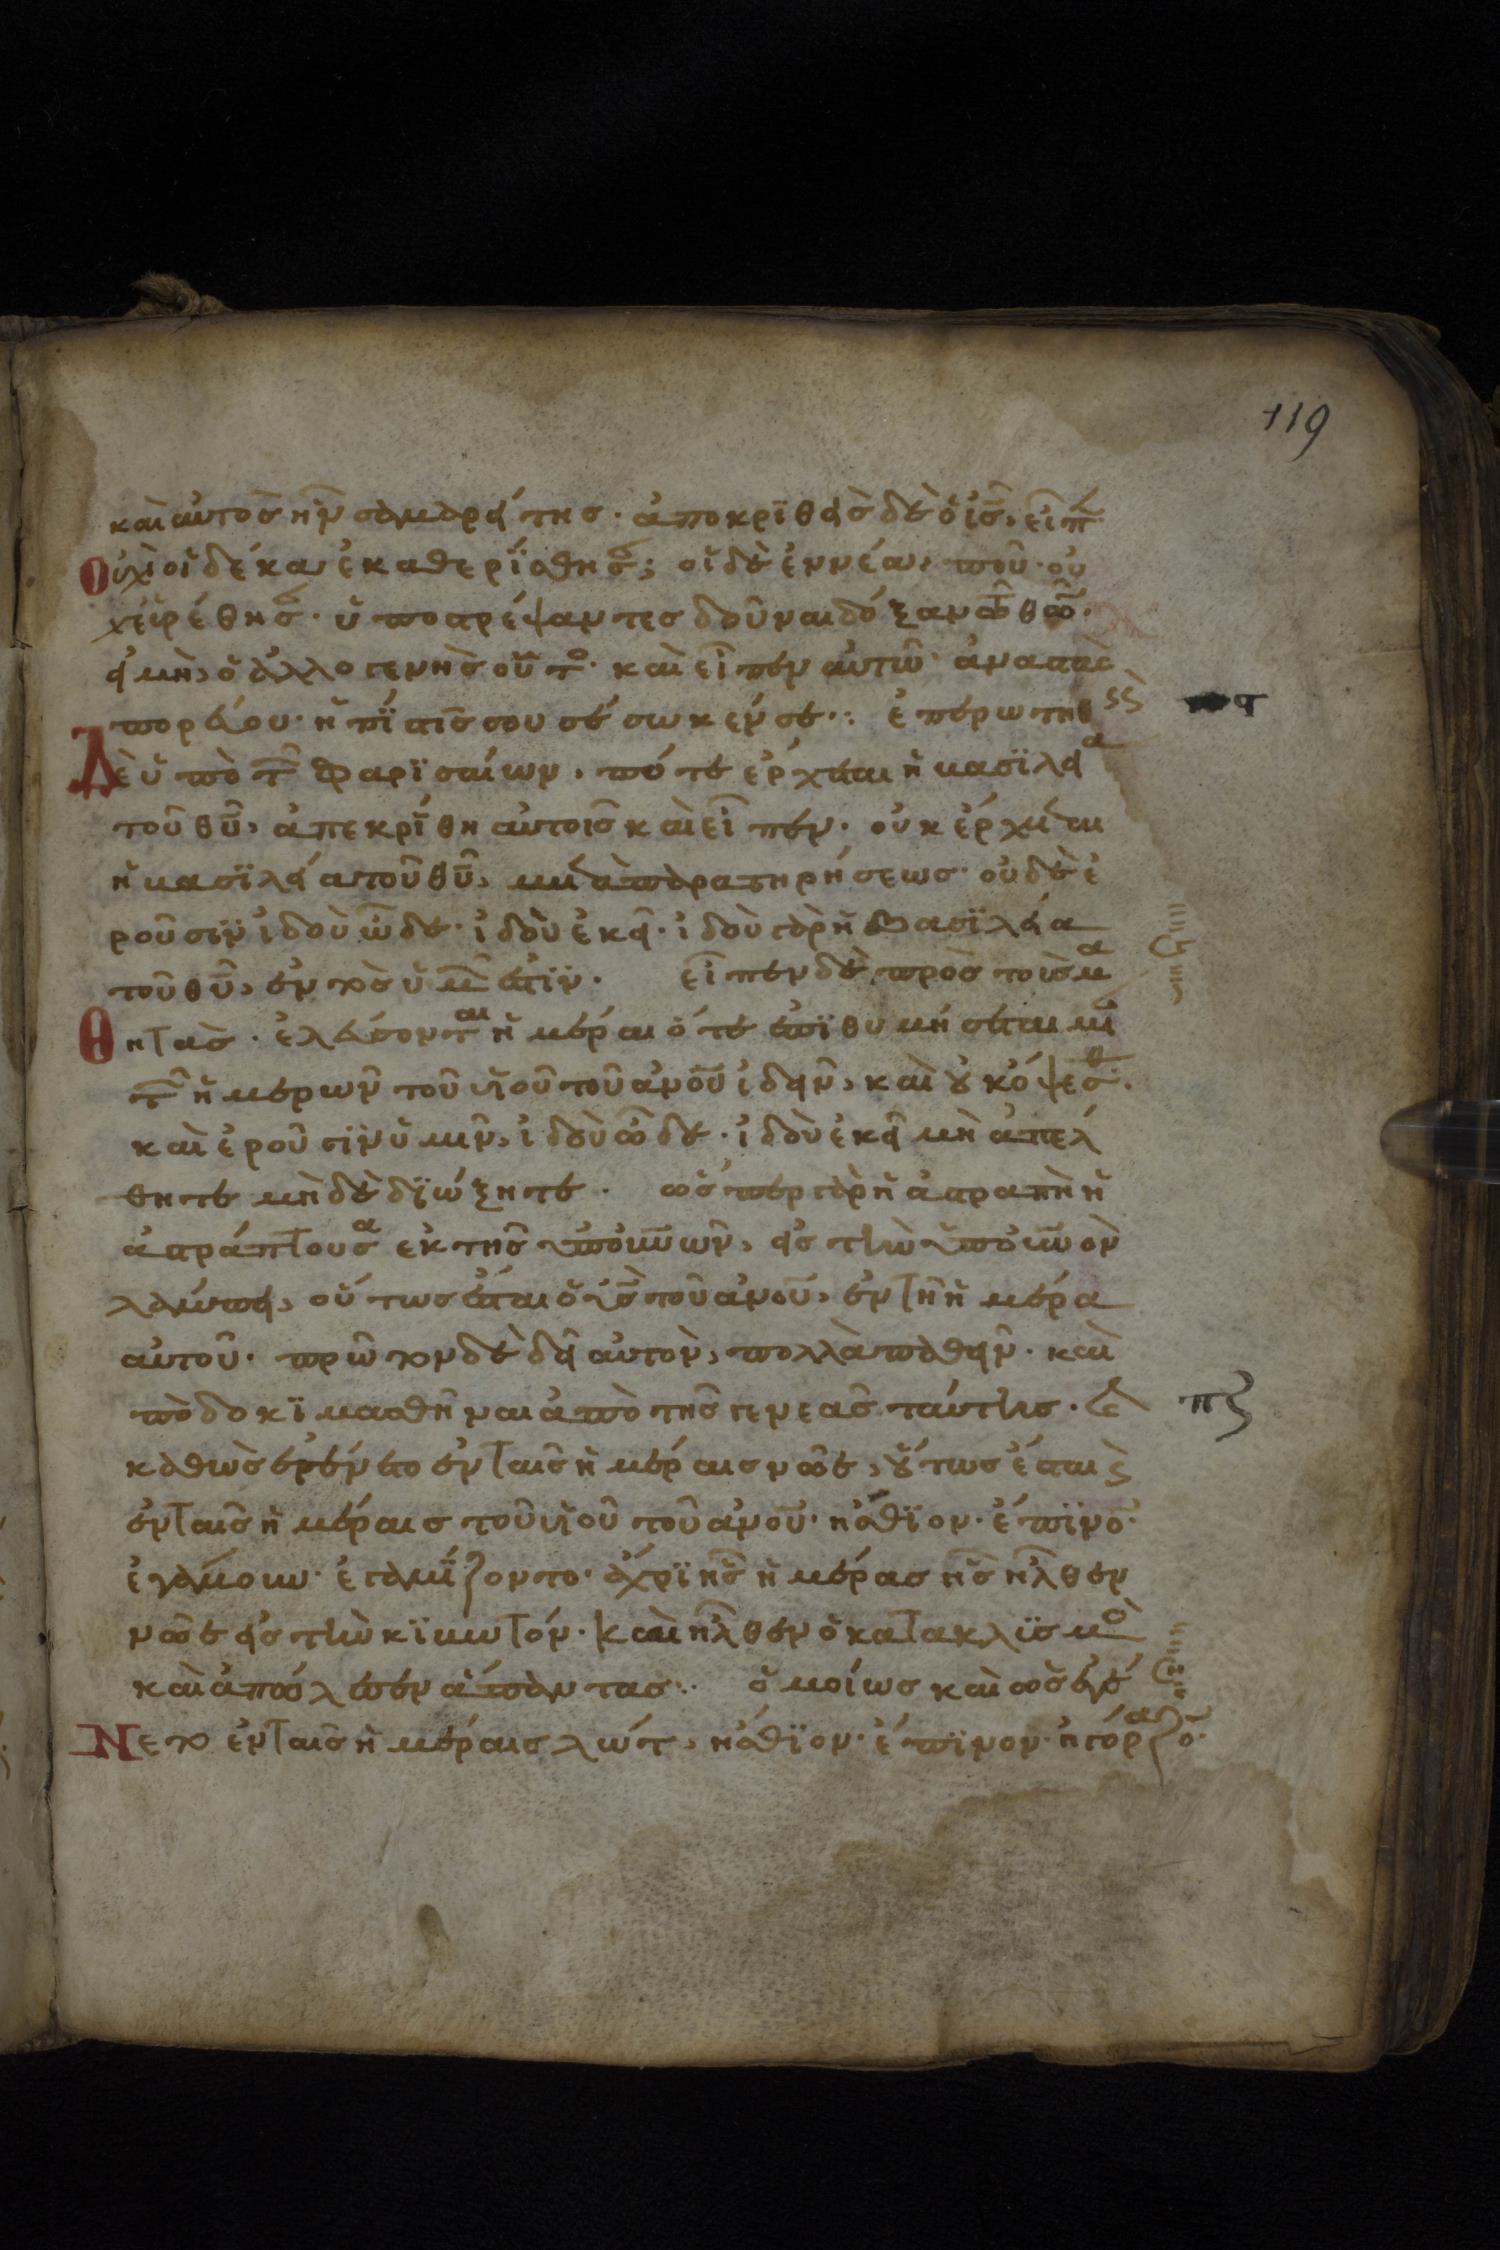 119
καὶ αὐτὸς ἦν σαμαρείτης· ἀποκριθεὶς δὲ ὁ ις, εἶπ
Οὐχὶ οἱ δέκα ἐκαθερίσθησ; οἱ δὲ ἐννέα, ποῦ· οὐ
χ εὑρέθησ· ὑποστρέψαντες δοῦναι δόξαν τῶ θῶ·
εἰ μὴ, ὁ ἀλλογενὴς οὗτο· καὶ εἶπεν αὐτῶ· ἀναστὰς
πορεύου· ἡ πίστις σου σέσωκέν σε: ἐπερωτηθεὶς
Δὲ ὑπὸ τῶν φαρϊσαίων, πότε ἔρχεται ἡ βασϊλεία
τοῦ θυ, ἀπεκρίθη αὐτοῖς καὶ εἶπεν· οὐκ ἔρχεται
ἡ βασϊλεία τοῦ θυ, μετὰ παρατηρήσεως· οὐδὲ ἐ
ροῦσϊν ἰδοὺ ὧδε· ἰδοὺ ἐκεῖ· ἰδοὺ γὰρ ἡ βασϊλεία
τοῦ θυ, ἐντὸς ὑμῶν ἐστϊν. εἶπεν δὲ πρὸς τοὺς μα
Θητὰς· ἐλεύσονται ἡμέραι ὅτε ἐπϊθυμήσεται μίαν
τῶν ἡμερῶν τοῦ υἱοῦ τοῦ ανου ἰδεῖν, καὶ οὐκ ὄψεσθ.
καὶ ἐροῦσϊν ὑμῖν, ἰδοὺ ὧδε· ἰδοὺ ἐκεῖ μὴ ἀπέλ
θητε μὴ δὲ δϊώξητε. ὥσπερ γὰρ ἡ ἀστραπὴ ἡ
ἀστράπτουσα ἐκ τῆς ὑπὸ οὐνων, εἰς τὴν ὑπὸ οὐνον
λάμπει, οὕτως ἔσται ὁ υς τοῦ ανου, ἐν τῇ ἡμέρα
αὐτοῦ· πρῶτον δὲ δεῖ αὐτὸν, πολλὰ παθεῖν· καὶ
ἀποδοκϊμασθῆναι ἀπὸ τῆς γενεᾶς ταύτης.
καθὼς ἐγένετο ἐν ταῖς ἡμέραις νῶε, οὕτως ἔσται καὶ
ἐν ταῖς ἡμέραις τοῦ υἱοῦ τοῦ ανου· ἤσθϊον· ἔπϊνο·
ἐγάμουν· ἐγαμίζοντο· ἄχρϊ ἧς ἡμέρας εἰσῆλθεν
νῶε εἰς τὴν κϊβωτόν· καὶ ἦλθεν ὁ κατακλϊσμὸ
καὶ ἀπώλεσεν ἅπαντας: ὁμοίως καὶ ὡς ἐγέ
Νετο ἐν ταῖς ἡμέραις λώτ, ἤσθϊον· ἔπϊνον· ἠγόραζο·
πζ